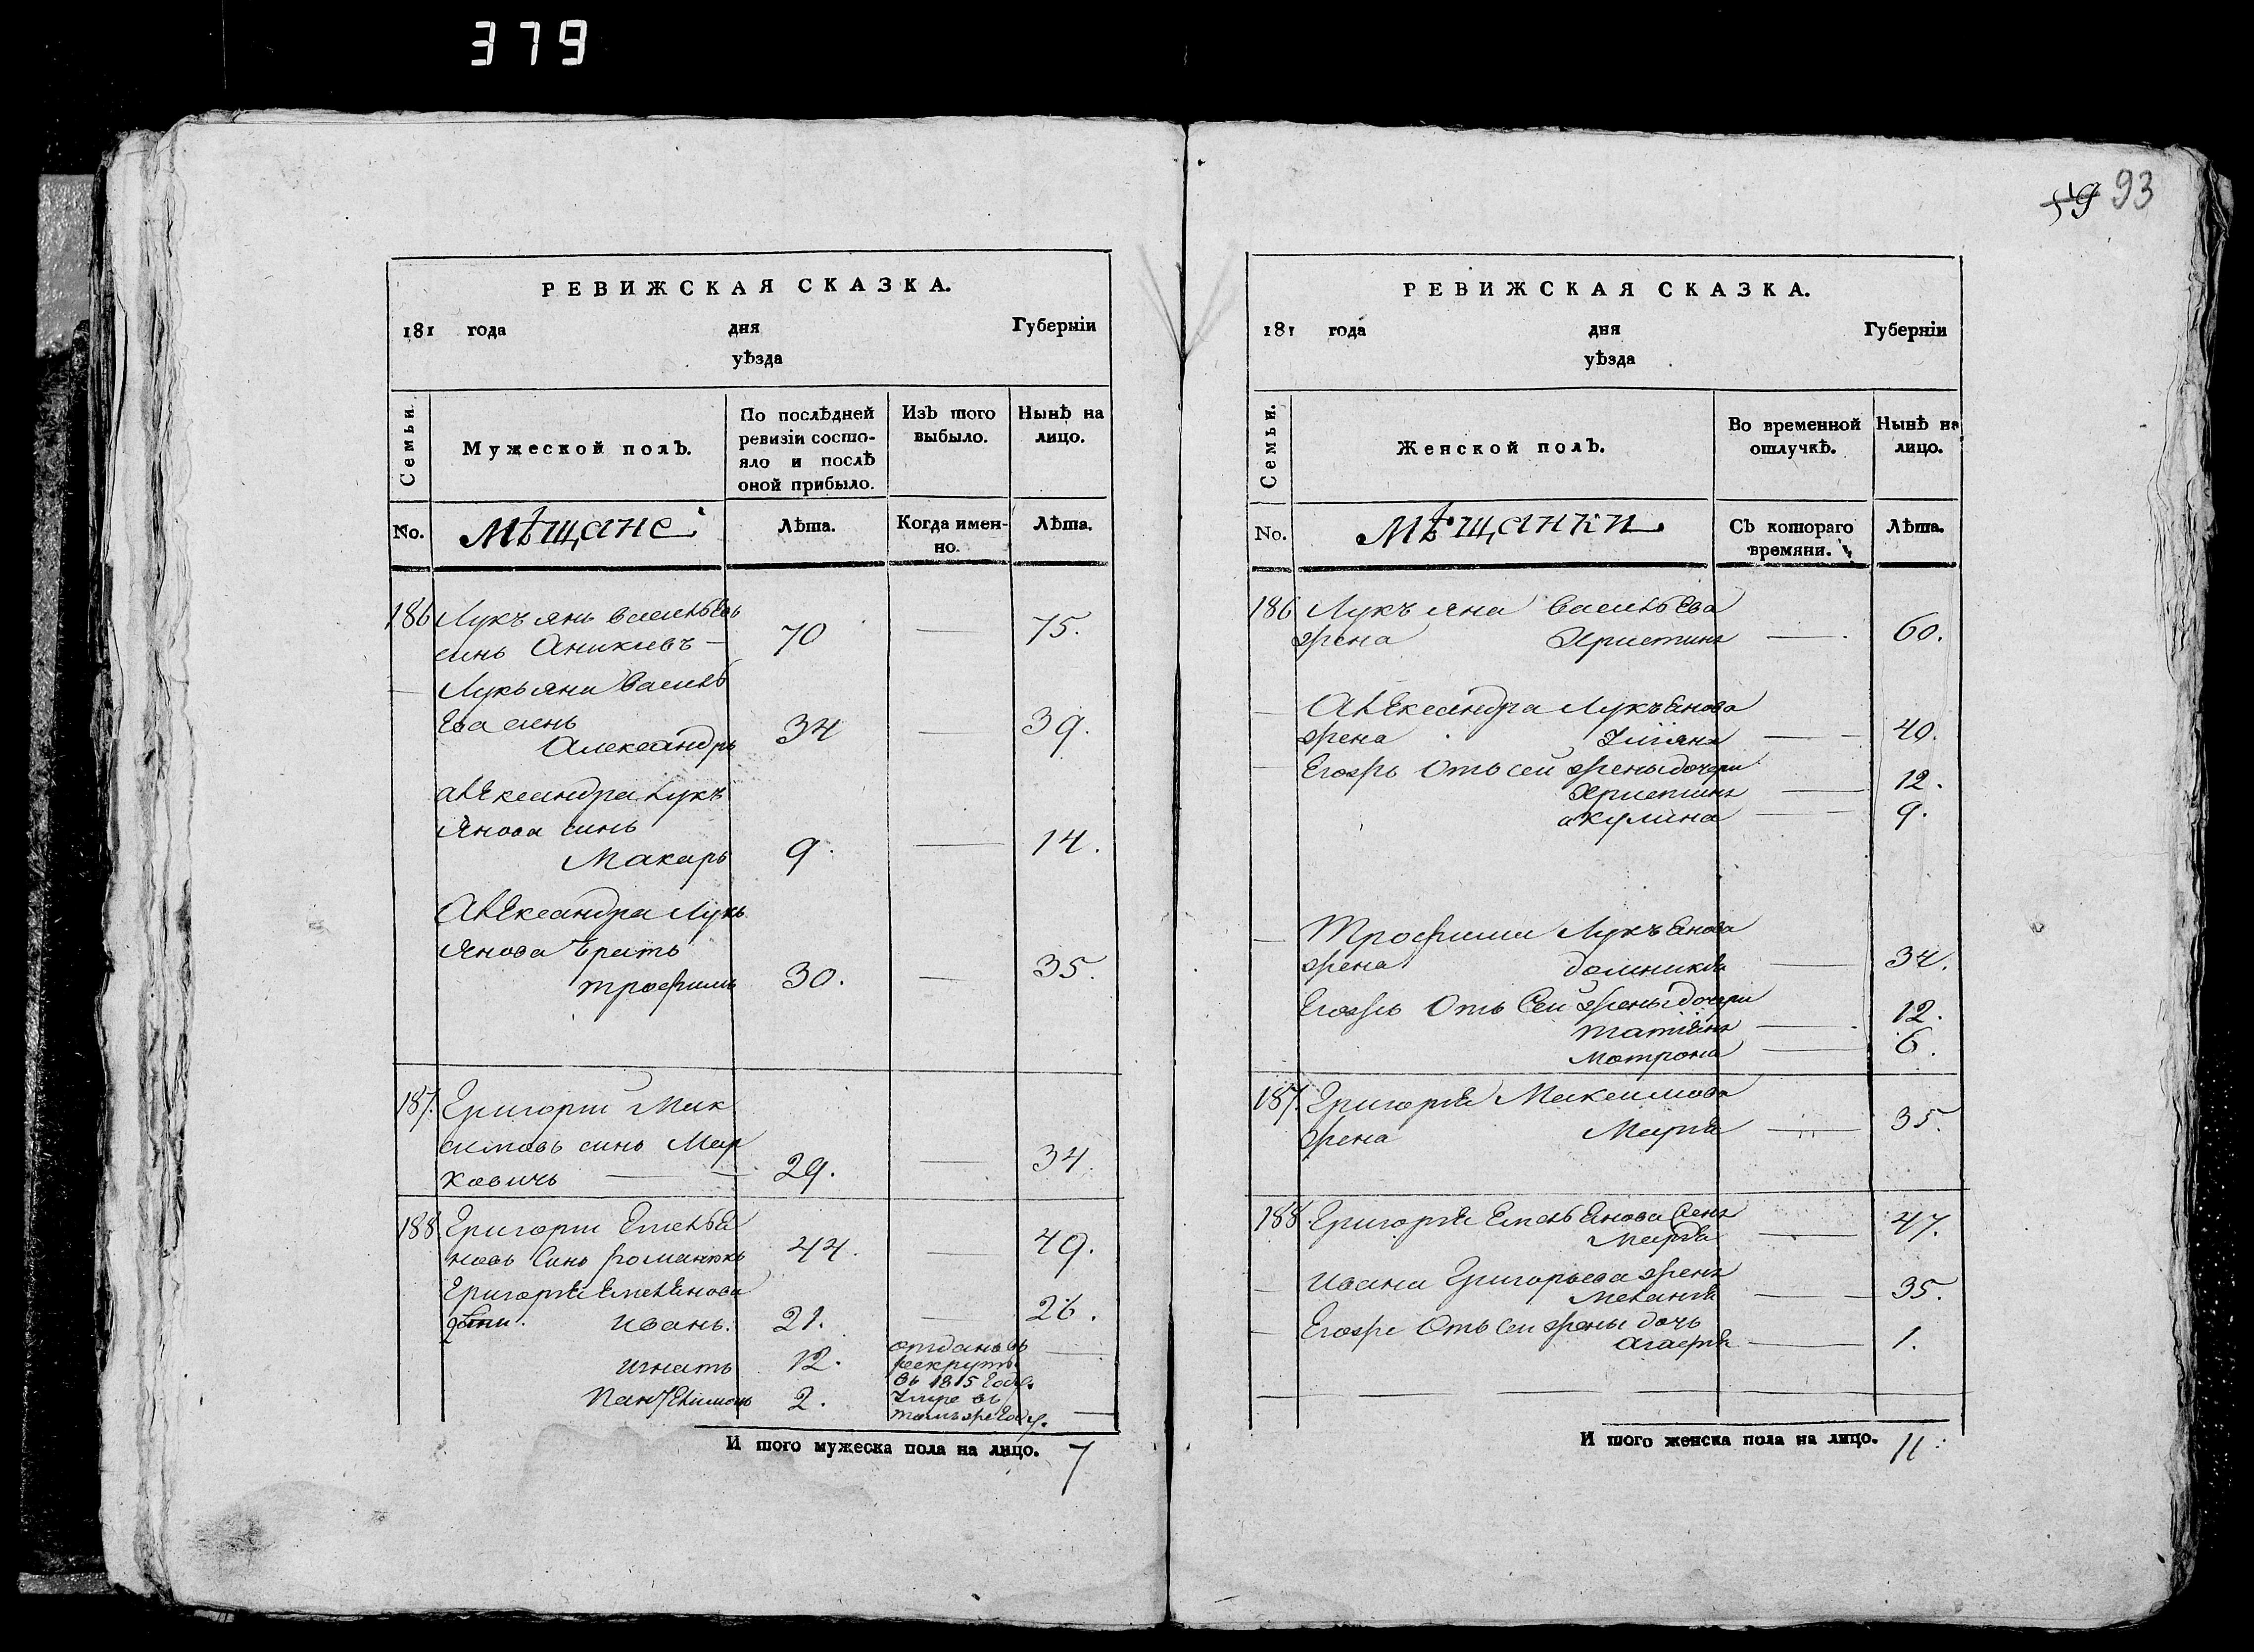 379
93
РЕВИЖСКАЯ СКАЗКА.
181 года дня Губерніи
уѣзда
Семьи.
Мужеской полъ.
По послѣдней
ревизіи состо-
яло и послѣ
оной прибыло.
Изъ того
выбыло.
Нынѣ на
лицо.
No.
Мѣщане
Лѣта.
Когда имен-
но.
Лѣта.
186 Лукъянъ васильевъ
синъ Аникиевъ — 70 — 75.
— Лукьяна Василь
ева синъ
Александръ 34 — 39.
александра лукъ
янова синъ
Макаръ 9. — 14.
Александра Лукь
янова братъ
трофимъ 30. — 35.
187. Григорій Мак
симовъ синъ Мар
ковичъ — 29. — 34.
188 Григорій Емелья
новъ Синъ романюкъ 44. — 49.
Григорія емелянова
дѣти. иванъ. 21. — 26.
игнатъ 12. отданъ въ
рекруты
въ 1815 году. —
Пантелимонъ 2. Умре въ
томъ же году. —
И того мужеска пола на лицо. 7
РЕВИЖСКАЯ СКАЗКА.
181 года дня Губерніи
уѣзда
Семьи.
Женской полъ.
Во временной
отлучкѣ.
Нынѣ на
лицо.
No.
Мѣщанки.
Съ котораго
времяни.
Лѣта.
186 Лукъяна васильева
жена Христина — 60.
— Александра Лукъянова
жена Улияна — 40.
— Егожъ Отъ сей жены дочери
Христина — 12.
акулина — 9.
— Трофима Лукъянова
жена домникія — 34.
Егожъ Отъ Сей жены дочери
татіяна — 12.
мотрона — 6.
187. Григорія Максимова
жена Марія — 35.
188. Григорія Емельянова жена
Марія — 47.
— ивана Григорьева жена
Меланія — 35.
— Егоже Отъ сей жены дочь
агафія — 1.
И того женска пола на лицо. 11.